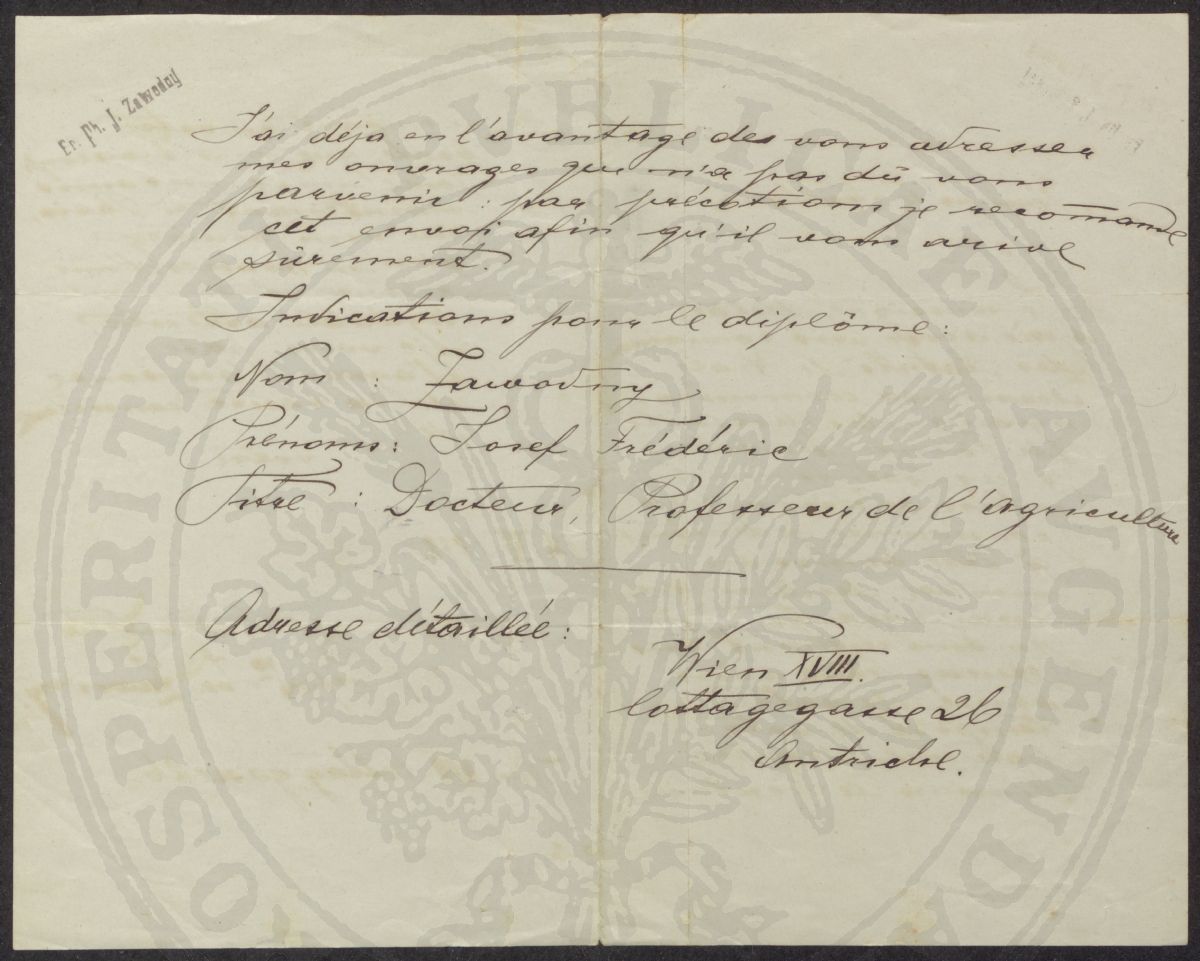 Er. Ph. J. Zawodny
J'ai déja eu l'avantage des vous adresser
mes ouvrages que n'a pas dû vous
parvenir : par précotions je recomande
cet envoi afin qu'il vous arive
sûrement.
Indications pour le diplôme :
Nom : Zawodny
Prénoms : Josef Frédéric
Titre : Docteur, Professeur de l'agriculture
Adresse détaillée :
Wien XVIII.
Cottagegasse 26
Autriche.
PUBLICAE
PROSPERITATI
AUGENDAE